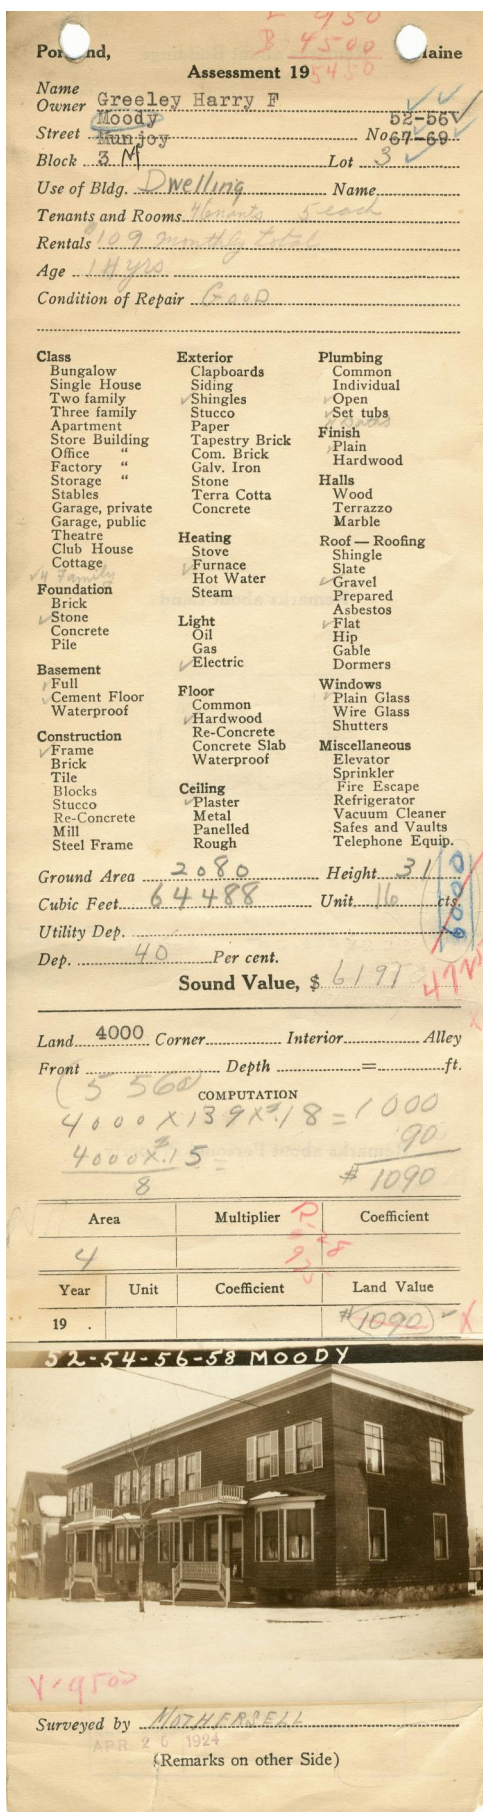 950
B 4500
5450
Portland, Maine
Assessment 19
Name
Owner Greeley Harry F
Moody 52-56
Street Munjoy No 67-69
Block 3 M Lot 3
Use of Bldg. Dwelling Name
Tenants and Rooms 4 tenants 5 each
Rentals $109 monthly total
Age 14 yrs
Condition of Repair Good
Class
Bungalow
Single House
Two family
Three family
Apartment
Store Building
Office "
Factory "
Storage "
Stables
Garage, private
Garage, public
Theatre
Club House
Cottage
✓4 Family
Foundation
Brick
✓Stone
Concrete
Pile
Basement
✓Full
✓Cement Floor
Waterproof
Construction
✓Frame
Brick
Tile
Blocks
Stucco
Re-Concrete
Mill
Steel Frame
Exterior
Clapboards
Siding
✓Shingles
Stucco
Paper
Tapestry Brick
Com. Brick
Galv. Iron
Stone
Terra Cotta
Concrete
Heating
Stove
✓Furnace
Hot Water
Steam
Light
Oil
Gas
✓Electric
Floor
Common
✓Hardwood
Re-Concrete
Concrete Slab
Waterproof
Ceiling
✓Plaster
Metal
Panelled
Rough
Plumbing
Common
Individual
✓Open
✓Set tubs
Baths
Finish
✓Plain
Hardwood
Halls
Wood
Terrazzo
Marble
Roof — Roofing
Shingle
Slate
✓Gravel
Prepared
Asbestos
✓Flat
Hip
Gable
Dormers
Windows
✓Plain Glass
Wire Glass
Shutters
Miscellaneous
Elevator
Sprinkler
Fire Escape
Refrigerator
Vacuum Cleaner
Safes and Vaults
Telephone Equip.
Ground Area 2080 Height 31
Cubic Feet 64488 Unit 16 cts.
Utility Dep.
Dep. 40 Per cent.
Sound Value, $ 6191
4725
Land 4000 Corner Interior Alley
Front Depth = ft.
(5 560)
COMPUTATION
4000 X 139 X .18 = 1000
90
4000 X .15 =
8
$ 1090
Area Multiplier Coefficient
4
Year Unit Coefficient Land Value
19 . $1090
52-54-56-58 MOODY
Surveyed by MOTHERSELL
APR 26 1924
(Remarks on other Side)